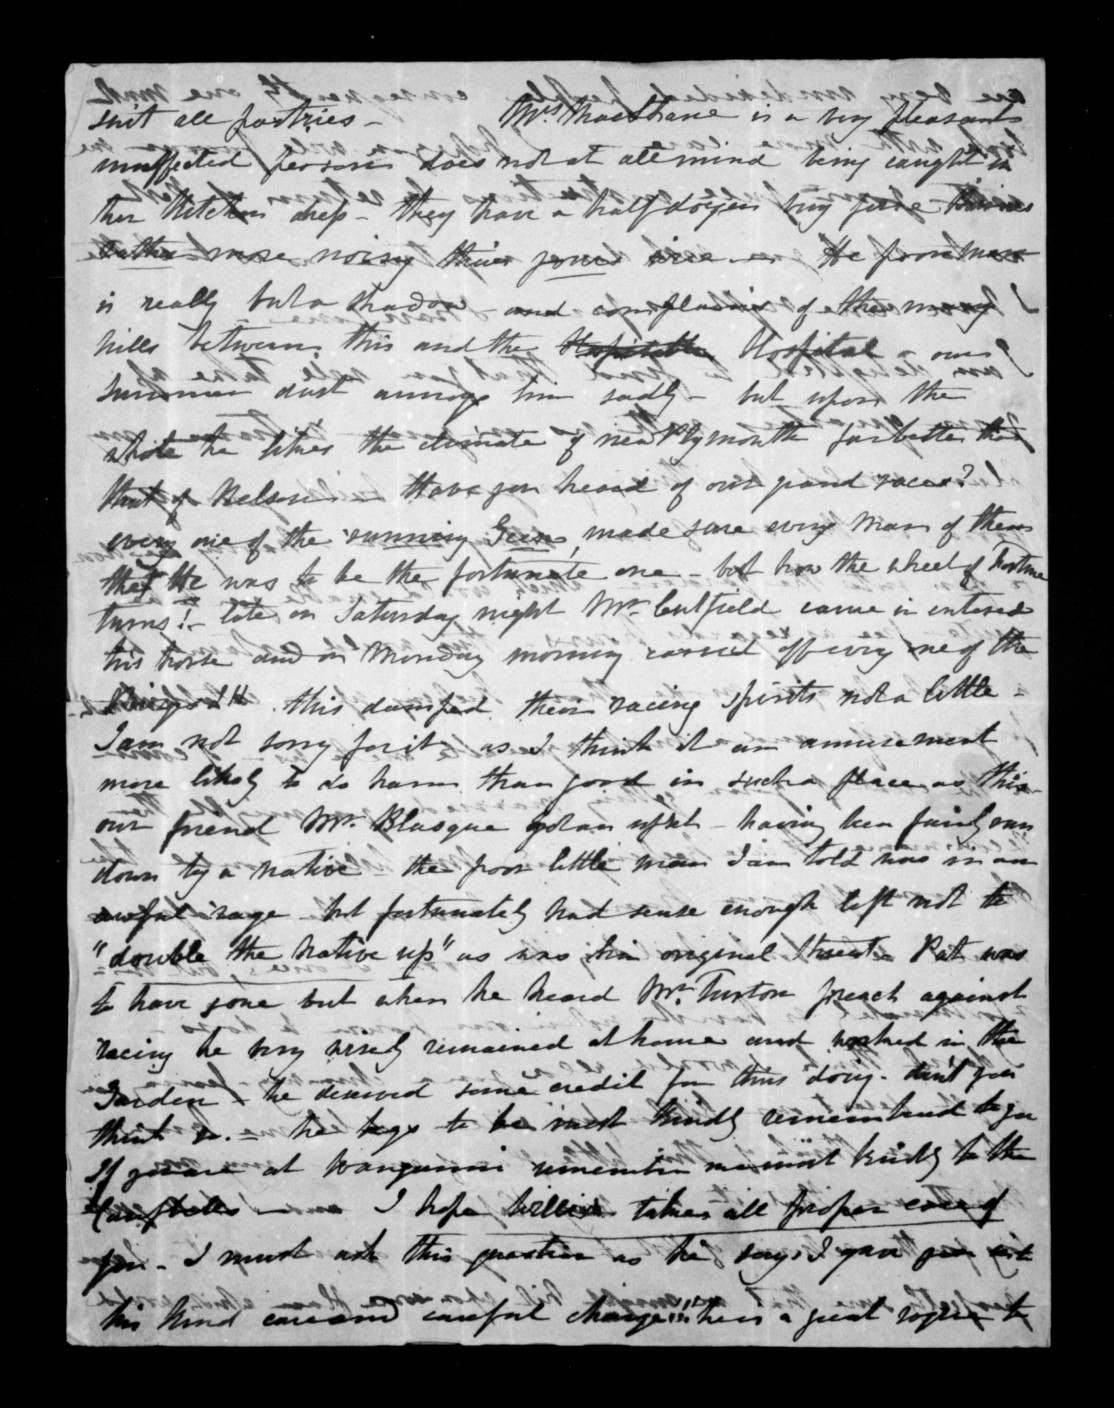 suit all parties - Mrs MacShane is a very pleasant
unaffected person does not at all mind being caught in
her Kitchen dress - they have a half dozen very fine
rather more noisy than yours He poor man
is really but a shadow - and complains of the many
hills between this and the Hospital Hospital & our
Summer dust annoys him sadly - but upon the
whole he likes the climate of New Plymouth far better than
that of Nelson - Have you heard of our grand races?
every one of the running Geese, made sure every man of them
that He was to be the fortunate one - but how the wheel of fortune
turns! - late on Saturday night Mr. Cutfield came in entered
his horse and on Monday morning carried off every one of the
this damped their racing spirits not a little -
I am not sorry for it as I think it an amusement
more likely to do harm than good in such a place as this -
our friend Mr. Blasque got an upset - having been fairly run
down by a native - the poor little man I am told was in an
awful rage but fortunately had sense enough left not to
"double the native up" as was his original threat. Pat was
to have gone but when he heard Mr. Turton preach against
racing he very wisely remained at home and worked in the
Garden - he deserved some credit for thus doing - don't you
think so. - he begs to be most kindly remembered to you
If you are at Wanganui remember me most kindly to the
Campbells - I hope Willie takes all proper care of
you - I must ask this question as he says I gave you
his kind care and careful charge!!! he is a great rogue to